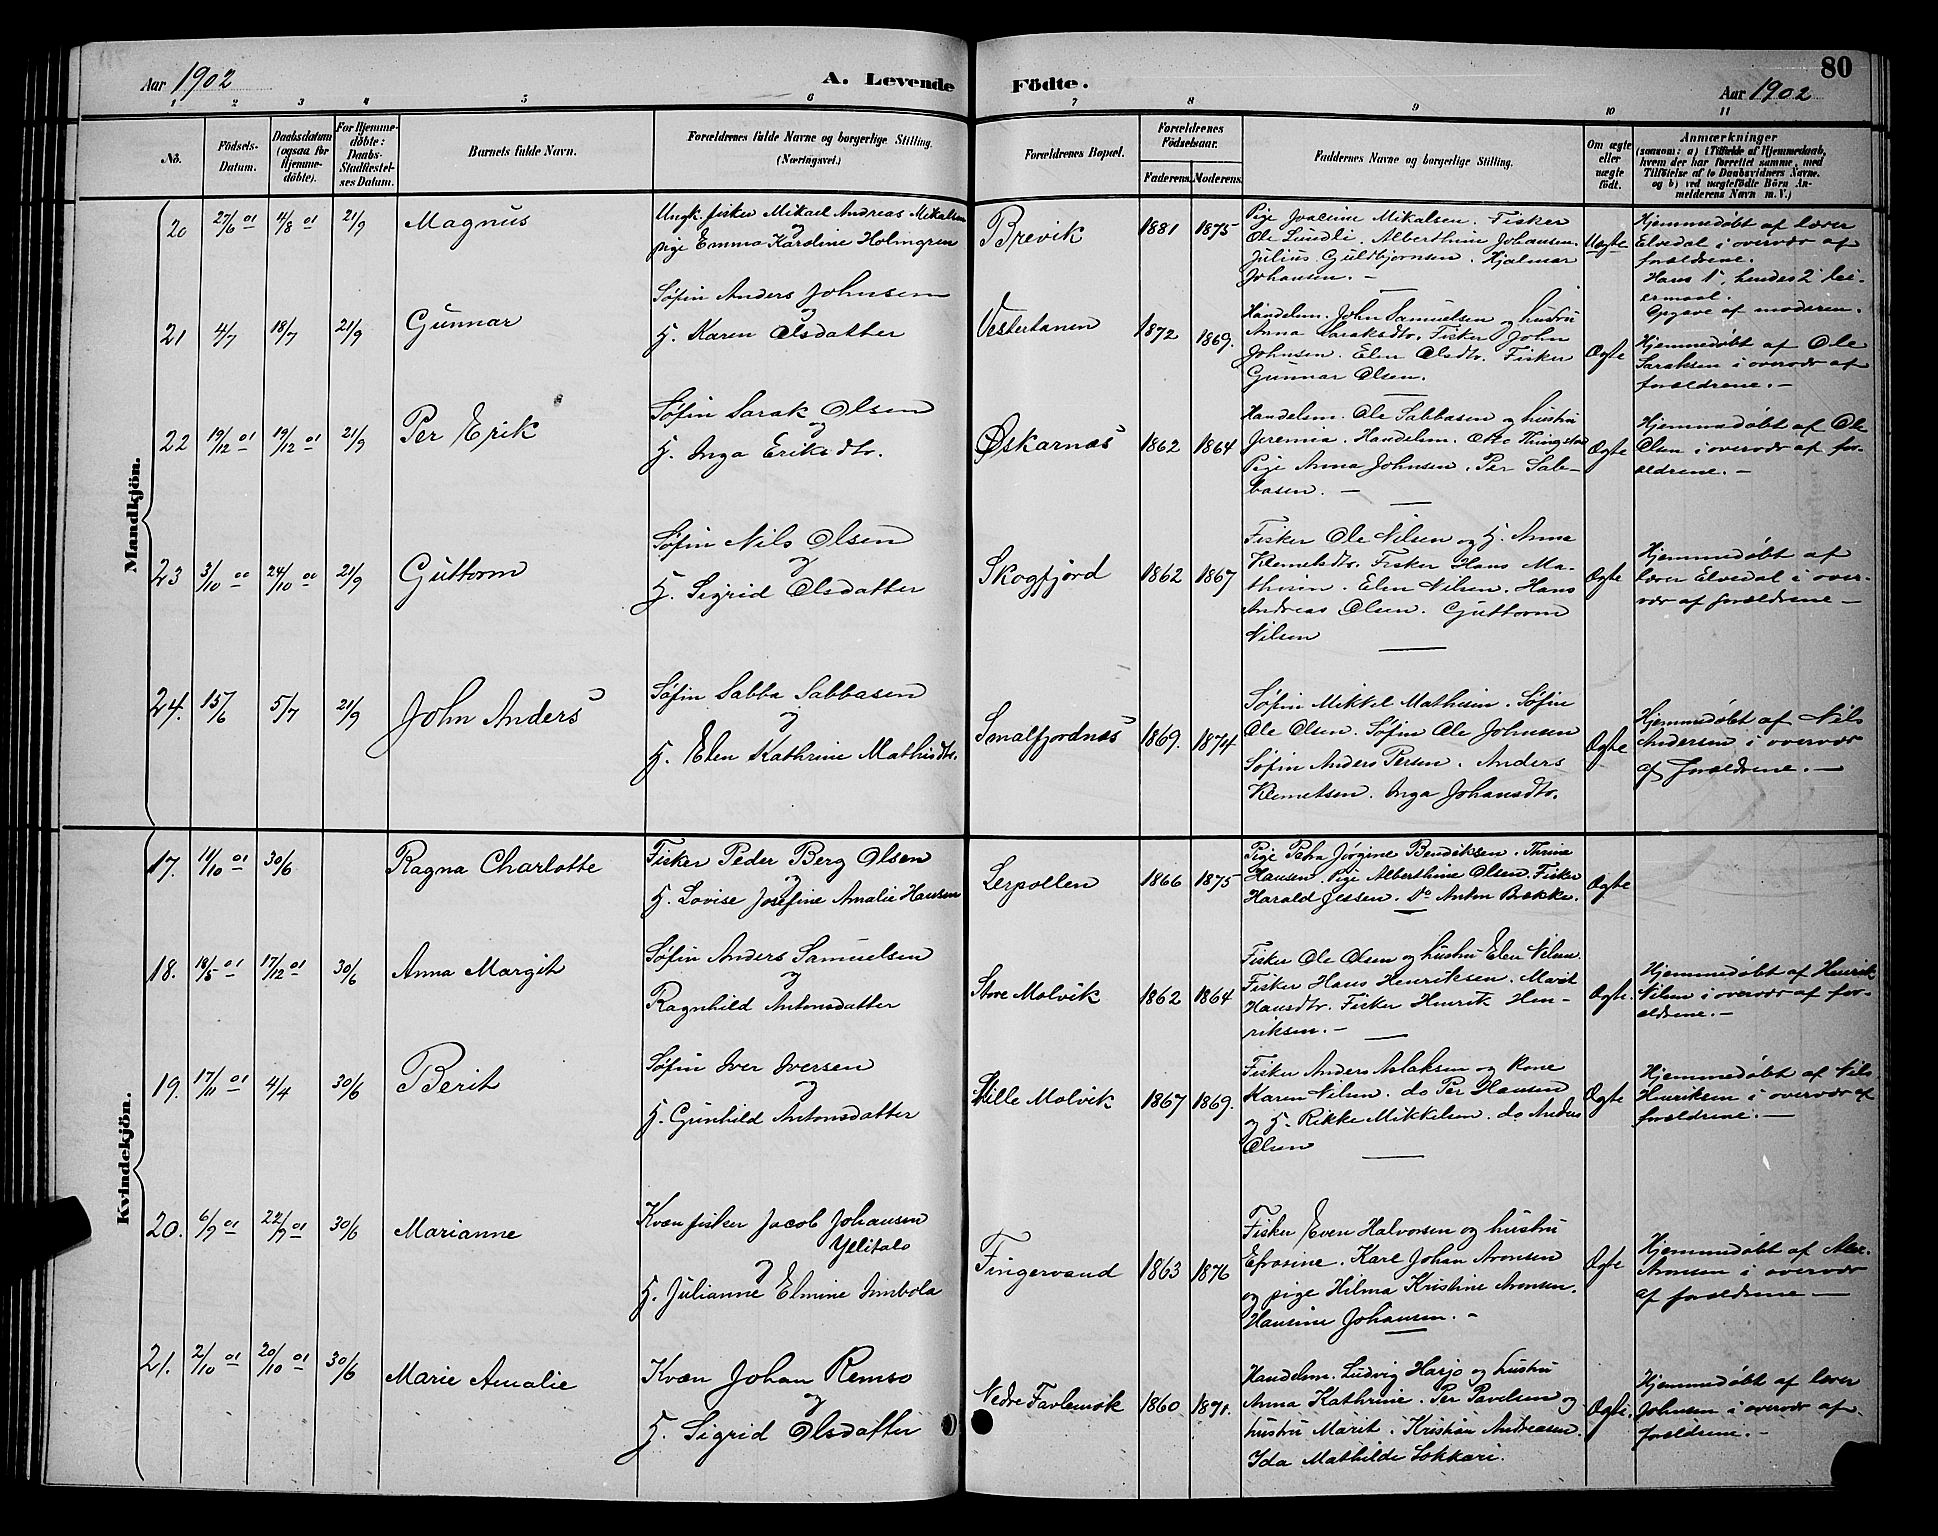 Aar 1902
A. Levende
Födte.
Aar 1902
80
1 2 3 4 5 6 7 8 9 10 11
No.
Födsels-
Datum.
Daabsdatum
(ogsaa for
Hjemme-
döbte).
For Hjemme-
döbte:
Daabs-
Stadfæstel-
ses Datum.
Barnets fulde Navn.
Forældrenes fulde Navne og borgerlige Stilling.
(Næringsvei.)
Forældrenes Bopæl.
Forældrenes
Födselsaar.
Faderens. Moderens.
Faddernes Navne og borgerlige Stilling.
Om ægte
eller
uægte
födt.
Anmærkninger
(saasom: a) i Tilfælde af Hjemmedaab,
hvem der har forrettet samme, med
Tilföielse af to Daabsvidners Navne.
og b) ved uægtefödte Börn An-
melderens Navn m. V.)
Mandkjön.
20 27/6 01 4/8 01 21/9 Magnus
Ungk. fisker Mikael Andreas Mikalsen
og
pige Emma Karoline Holmgren
Brevik 1881 1875
Pige Joacime Mikalsen. Fisker
Ole Lundli. Alberthine Johansen.
Julius Guldbjørnsen. Hjalmar
Johansen. –
Uægte
Hjemmedøbt af lærer
Elvedal i overvær af
forældrene.
Hans 1', hendes 2' lei-
ermaal.
Opgave af moderen.
21 4/7 18/7 21/9 Gunnar
Søfin Anders Johnsen
og
H. Karen Olsdatter
Vestertanen 1872 1869.
Handelsm. John Samuelsen og hustru
Anna Saraksdtr. Fisker John
Johnsen. Elen Olsdtr. Fisker
Gunnar Olsen.
Ægte
Hjemmedøbt af Ole
Saraksen i overvær af
forældrene. –
22 19/12 01 19/12 01 21/9 Per Erik
Søfin Sarak Olsen
og
H. Inga Eriksdtr.
Øskarnæs 1862 1864
Handelsm. Ole Sabbasen og hustru
Jeremia. Handelsm. Otto Thingstad
Pige Anna Johnsen. Per Sab-
basen. –
Ægte
Hjemmedøbt af Ole
Olsen i overvær af for-
ældrene. –
23 3/10 00 24/10 00 21/9 Guttorm
Søfin Nils Olsen
og
H. Sigrid Olsdatter
Skogfjord 1862 1867
Fisker Ole Nilsen og H. Anna
Klemetsdtr. Fisker Hans Ma-
thisen. Elen Nilsen. Hans
Andreas Olsen. Guttorm
Nilsen
Ægte
Hjemmedøbt af
lærer Elvedal i over-
vær af forældrene –
24. 15/6 5/7 21/9 John Anders
Søfin Sabba Sabbasen
og
H. Elen Kathrine Mathisdtr.
Smalfjordnæs 1869. 1874
Søfin Mikkel Mathisen. Søfin
Ole Olsen. Søfin Ole Johnsen
Søfin Anders Persen. Anders
Klemetsen. Inga Johansdtr.
Ægte
Hjemmedøbt af Nils
Andersen i overvær
af forældrene. –
Kvindekjön.
17. 11/10 01 30/6 Ragna Charlotte
Fisker Peder Berg Olsen
og
H. Lovise Josefine Amalie Hansen
Lerpollen 1866 1875
Pige Petra Jørgine Bendiksen. Thrine
Hansen. Pige Alberthine Olsen. Fisker
Harald Jessen. Do Anton Brække.
Ægte
18. 18/5 01 17/12 01 30/6 Anna Margit
Søfin Anders Samuelsen
og
Ragnhild Antonsdatter
Store Molvik 1862 1864
Fisker Ole Olsen og hustru Elen Nilsen.
Fisker Hans Henriksen. Marit
Hansdtr. Fisker Henrik Hen-
riksen. –
Ægte.
Hjemmedøbt af Henrik
Nilsen i overvær af for-
ældrene. –
19. 17/11 01 4/4 30/6 Berit
Søfin Iver Iversen
og
H. Gunhild Antonsdatter
Lille Molvik 1867 1869.
Fisker Anders Aslaksen og kone
Karen Nilsen. do Per Hansen
og H. Rikke Mikkelsen. do Anders
Olsen
Ægte
Hjemmedøbt af Nils
Henriksen i overvær af
forældrene. –
20. 6/7 01 22/7 01 30/6 Marianne
Kvæn fisker Jacob Johansen
Ylitalo
og
H. Julianne Elmine Imbola
Fingervand 1863 1876
Fisker Even Halvorsen og hustru
Efrosine. Karl Johan Aronsen
og pige Hilma Kristine Aronsen.
Hansine Johansen. –
Ægte
Hjemmedøbt af Alex.
Aronsen i overvær
af forældrene –
21. 2/10 01 20/10 01 30/6 Marie Amalie
Kvæn Johan Remso
og
H. Sigrid Olsdatter
Nedre 1860 1871.
Handelsm. Ludvig Harjo og hustru
Anna Kathrine. Per Pavelsen og
hustru Marit. Kristian Andreasen.
Ida Mathilde Lokkari.
Ægte.
Hjemmedøbt af lærer
Johnsen i overvær af
forældrene. –